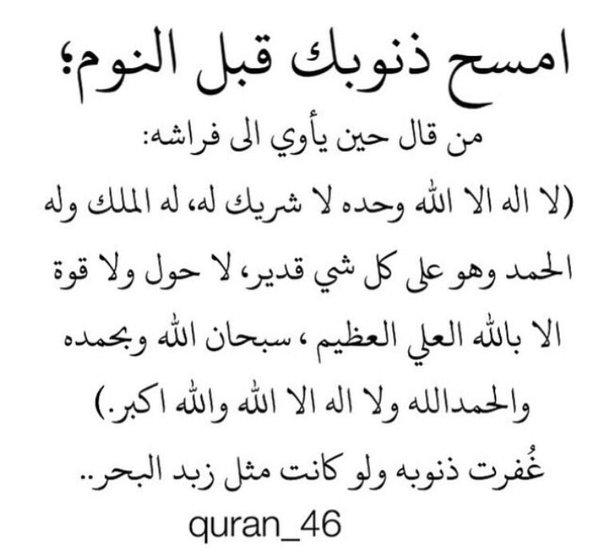 امسح ذنوبك قبل النوم؛
من قال حين يأوي الى فراشه:
(لا اله الا الله وحده لا شريك له، له الملك وله
الحمد وهو على كل شي قدير، لا حول ولا قوة
الا بالله العلي العظيم ، سبحان الله وبحمده
والحمدالله ولا اله الا الله والله اكبر.)
غُفرت ذنوبه ولو كانت مثل زبد البحر..
quran_46